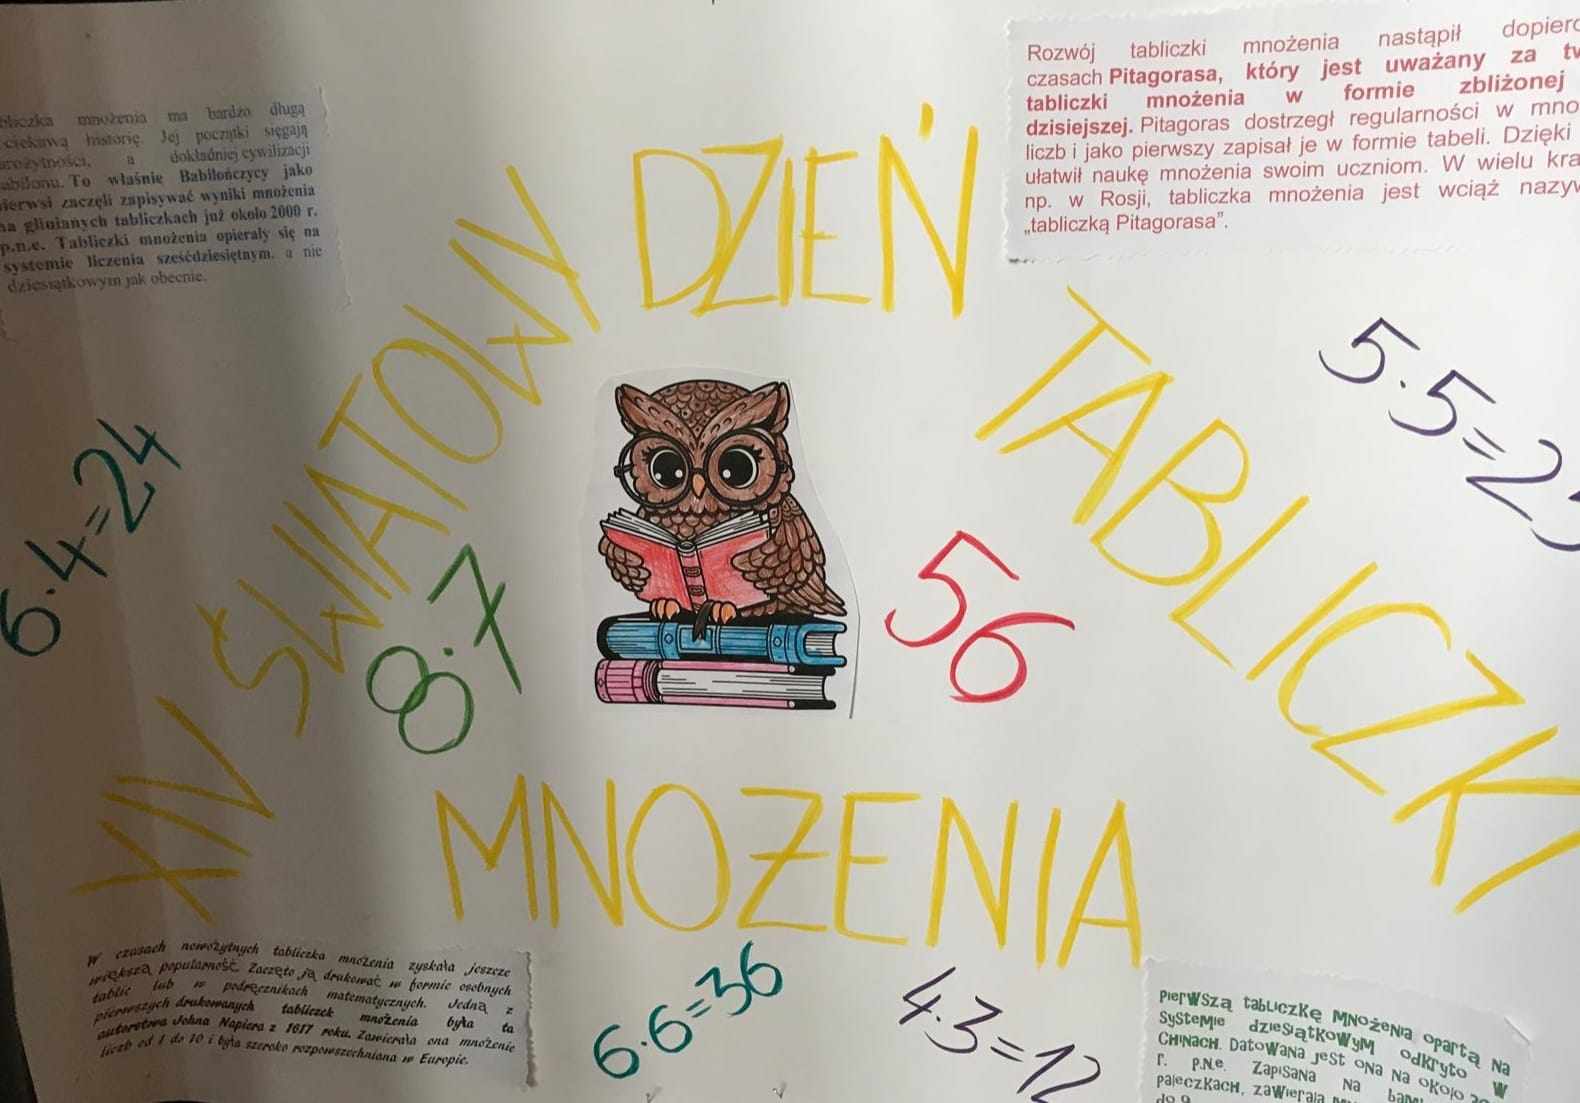 tabliczka mnożenia ma bardzo długą
ciekawą historię. Jej początki sięgają
starożytności, a dokładniej cywilizacji
Babilonu. To właśnie Babilończycy jako
pierwsi zaczęli zapisywać wyniki mnożenia
na glinianych tabliczkach już około 2000 r.
p.n.e. Tabliczki mnożenia opierały się na
systemie liczenia sześćdziesiętnym, a nie
dziesiątkowym jak obecnie.
Rozwój tabliczki mnożenia nastąpił dopiero
czasach Pitagorasa, który jest uważany za
tabliczki mnożenia w formie zbliżonej
dzisiejszej. Pitagoras dostrzegł regularności w
liczb i jako pierwszy zapisał je w formie tabeli. Dzięki
ułatwił naukę mnożenia swoim uczniom. W wielu
np. w Rosji, tabliczka mnożenia jest wciąż
„tabliczką Pitagorasa”.
XIV ŚWIATOWY DZIEŃ TABLICZKI
MNOŻENIA
6·4=24
5·5=25
8·7
56
6·6=36
4·3=12
W czasach nowożytnych tabliczka mnożenia zyskała jeszcze
większą popularność. Zaczęto ją drukować w formie osobnych
tablic lub w podręcznikach matematycznych. Jedną z
pierwszych drukowanych tabliczek mnożenia była ta
autorstwa Johna Napiera z 1617 roku. Zawierała ona mnożenie
liczb od 1 do 10 i była szeroko rozpowszechniana w Europie.
Pierwszą tabliczkę mnożenia opartą na
systemie dziesiątkowym odkryto w
Chinach. Datowana jest ona na około
r. p.n.e. Zapisana na
pałeczkach, zawierała
do 9